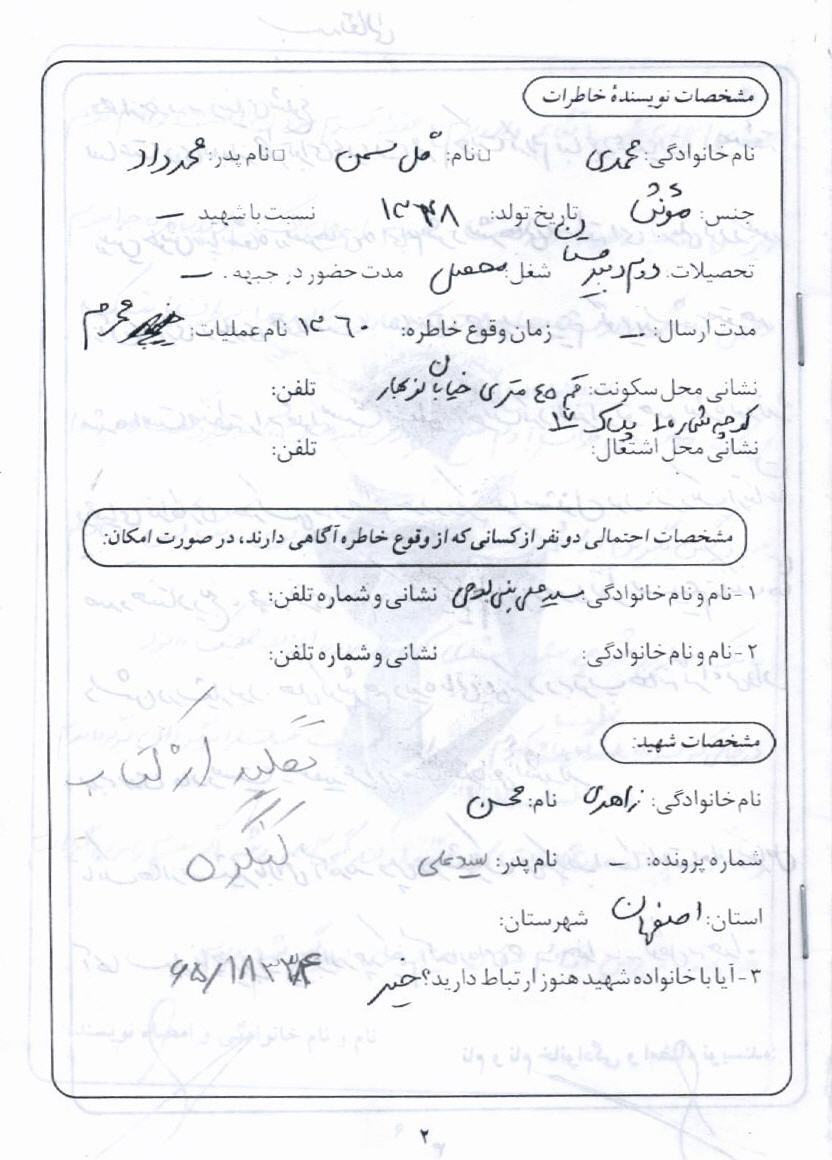 مشخصات نویسندهٔ خاطرات
نام خانوادگی: محمدی □نام: گل سمن □نام پدر: محمدداد
جنس: مؤنث تاریخ تولد: ۱۳۴۸ نسبت با شهید -
تحصیلات: دوم دبیرستان شغل: محصل مدت حضور در جبهه: -
مدت ارسال: - زمان وقوع خاطره: ۱۳۶۰ نام عملیات: محرم
نشانی محل سکونت: قم ۴۵ متری خیابان تلفن:
کوچه شماره ۱ پلاک ۱۷
نشانی محل اشتغال: تلفن:
مشخصات احتمالی دو نفر از کسانی که از وقوع خاطره آگاهی دارند، در صورت امکان:
۱- نام و نام خانوادگی سید علی بنی لوحی نشانی و شماره تلفن:
۲- نام و نام خانوادگی: نشانی و شماره تلفن:
مشخصات شهید:
از کتاب
نام خانوادگی: زاهدی نام: محسن
کنگره
شماره پرونده: - نام پدر: سیدعلی
استان: اصفهان شهرستان:
۳- آیا با خانواده شهید هنوز ارتباط دارید؟ خیر
۲